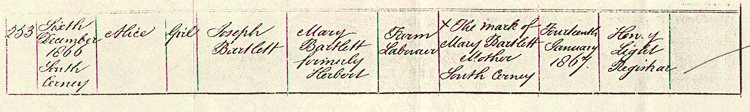 253
Sixth
December
1866
South
Cerney
Alice
Girl
Joseph
Bartlett
Mary
Bartlett
formerly
Herbert
Farm
Laborer
X The mark of
Mary Bartlett
Mother
South Cerney
Fourteenth
January
1867.
Hen.y
Light
Registrar